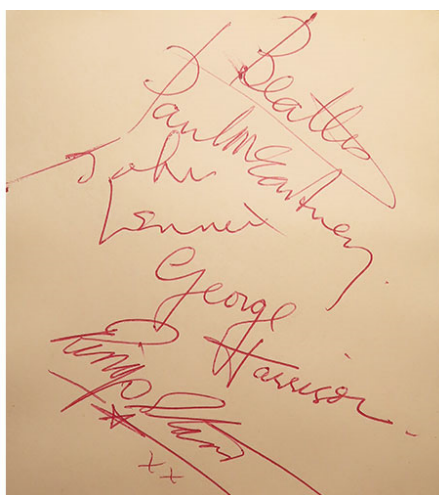 Beatles
Paul McCartney
John
Lennon
George
Harrison
Ringo Starr
xx